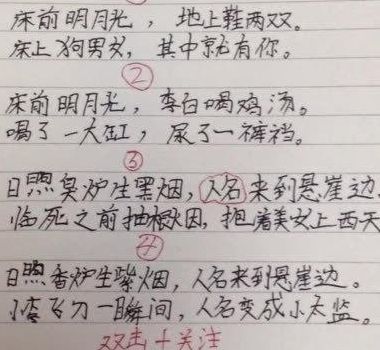 床前明月光，地上鞋两双。
床上狗男女，其中就有你。
②
床前明月光，李白喝鸡汤。
喝了一大缸，尿了一裤裆。
③
日照臭炉生黑烟，人名来到悬崖边，
临死之前抽根烟，抱着美女上西天
4
日照香炉生紫烟，人名来到悬崖边。
小李飞刀一瞬间，人名变成小太监。
双击+关注